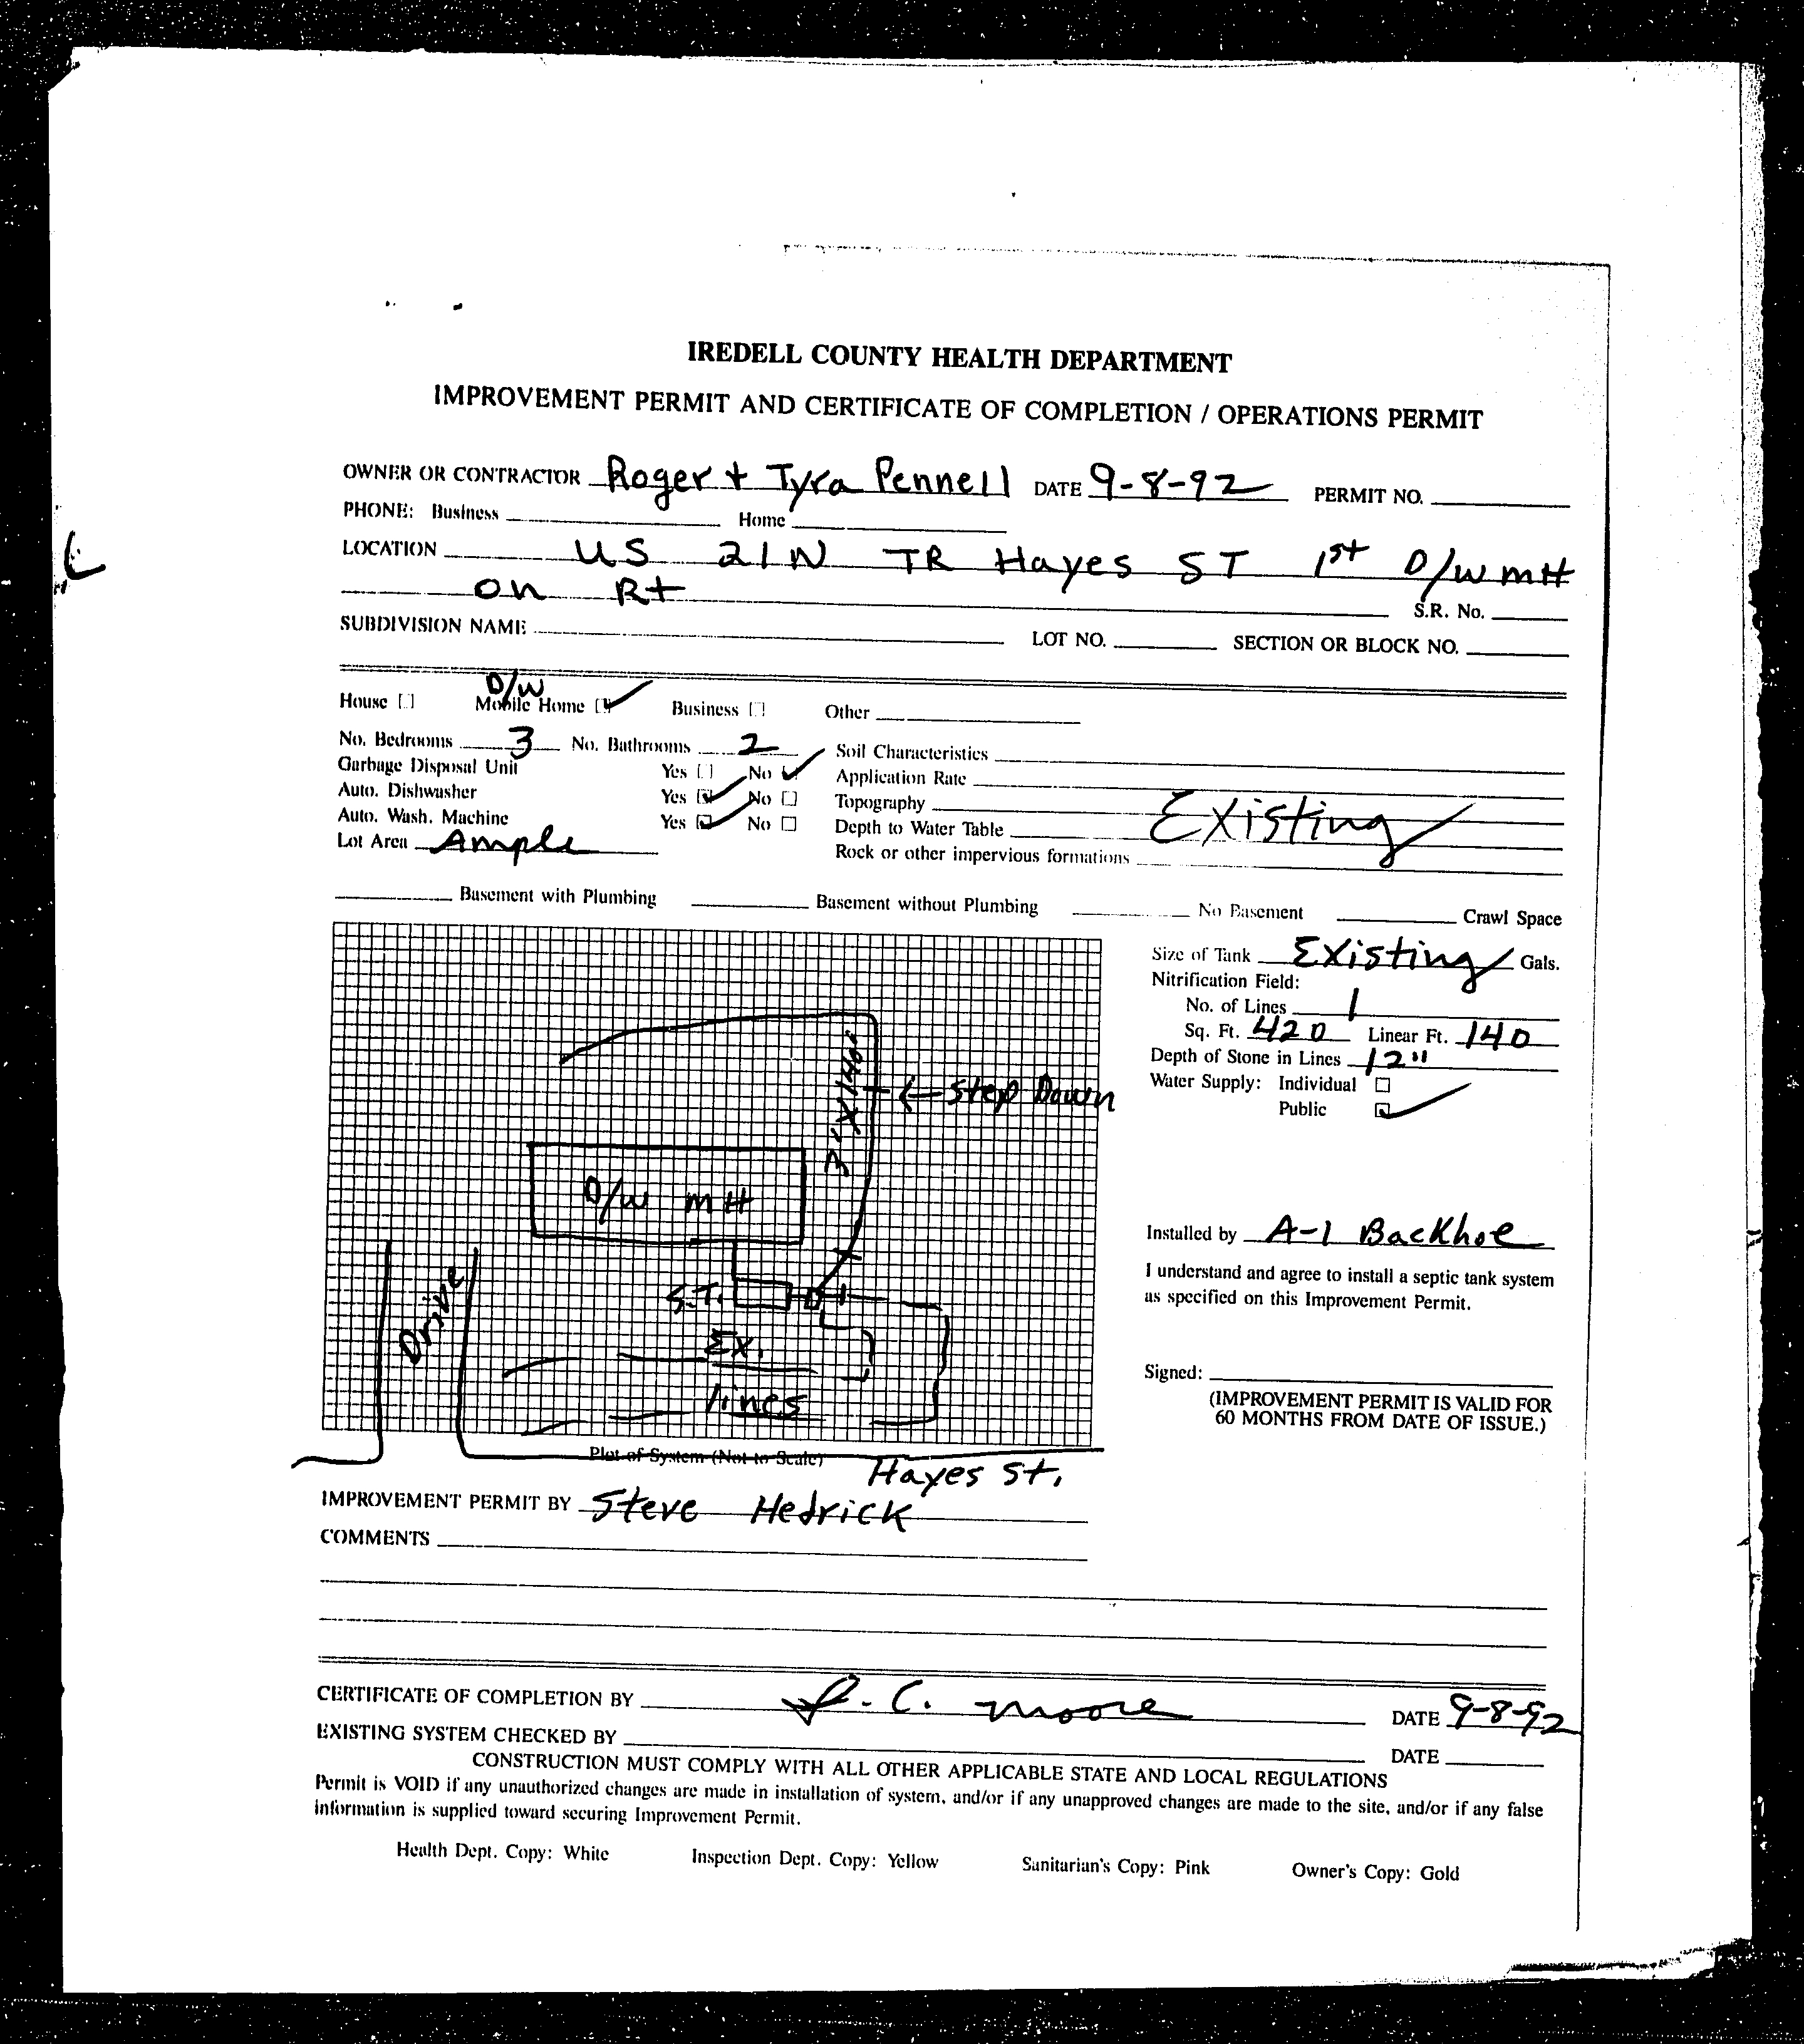 IREDELL COUNTY HEALTH DEPARTMENT
IMPROVEMENT PERMIT AND CERTIFICATE OF COMPLETION / OPERATIONS PERMIT
OWNER OR CONTRACTOR Roger + Tyra Pennell DATE 9-8-92 PERMIT NO.
PHONE: Business Home
LOCATION US 21N TR Hayes ST 1st D/W MH
on Rt S.R. No.
SUBDIVISION NAME LOT NO. SECTION OR BLOCK NO.
D/W
House Mobile Home Business Other
No. Bedrooms 3 No. Bathrooms 2 Soil Characteristics
Garbage Disposal Unit Yes No Application Rate
Auto. Dishwasher Yes No Topography
Auto. Wash. Machine Yes No Depth to Water Table Existing
Lot Area Ample Rock or other impervious formations
Basement with Plumbing Basement without Plumbing No Basement Crawl Space
Size of Tank Existing Gals.
Nitrification Field:
No. of Lines 1
Sq. Ft. 420 Linear Ft. 140
Depth of Stone in Lines 12"
Water Supply: Individual
Public
3' X 140'
← Step Down
D/W MH
Drive
S.T.
Ex.
lines
Installed by A-1 Backhoe
I understand and agree to install a septic tank system
as specified on this Improvement Permit.
Signed:
(IMPROVEMENT PERMIT IS VALID FOR
60 MONTHS FROM DATE OF ISSUE.)
Plot of System (Not to Scale)
Hayes St.
IMPROVEMENT PERMIT BY Steve Hedrick
COMMENTS
CERTIFICATE OF COMPLETION BY J. C. Moore DATE 9-8-92
EXISTING SYSTEM CHECKED BY DATE
CONSTRUCTION MUST COMPLY WITH ALL OTHER APPLICABLE STATE AND LOCAL REGULATIONS
Permit is VOID if any unauthorized changes are made in installation of system, and/or if any unapproved changes are made to the site, and/or if any false
information is supplied toward securing Improvement Permit.
Health Dept. Copy: White Inspection Dept. Copy: Yellow Sanitarian's Copy: Pink Owner's Copy: Gold